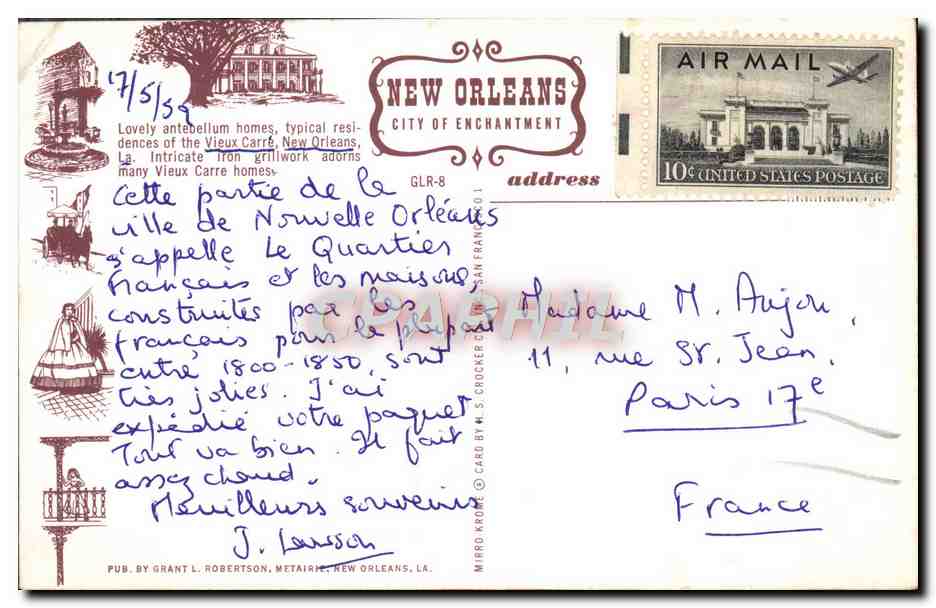 17/5/59
Lovely antebellum homes, typical resi-
dences of the Vieux Carré, New Orleans,
La. Intricate iron grillwork adorns
many Vieux Carre homes.
Cette partie de la
ville de Nouvelle Orléans
s'appelle Le Quartier
Français et les maisons,
construites par les
français pour la plupart
entre 1800-1850, sont
très jolies. J'ai
expédié votre paquet
Tout va bien. Il fait
assez chaud.
Meilleurs souvenirs
J. Lawson
PUB. BY GRANT L. ROBERTSON, METAIRIE, NEW ORLEANS, LA.
NEW ORLEANS
CITY OF ENCHANTMENT
GLR-8
address
MIRRO-KROME ® CARD BY H. S. CROCKER CO., INC., SAN FRANCISCO 1
AIR MAIL
10¢ UNITED STATES POSTAGE
Madame M. Anjou,
11, rue St. Jean,
Paris 17e
France
CPAPHIL